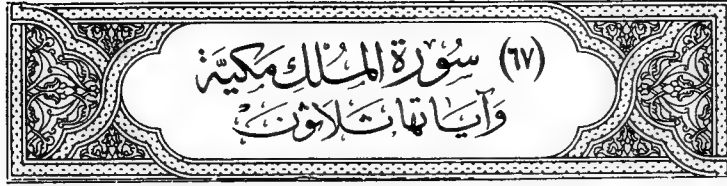 (٦٧) سُورَة المُلْكِ مَكيَّة
وَآيَاتهَا ثَلاثُونَ